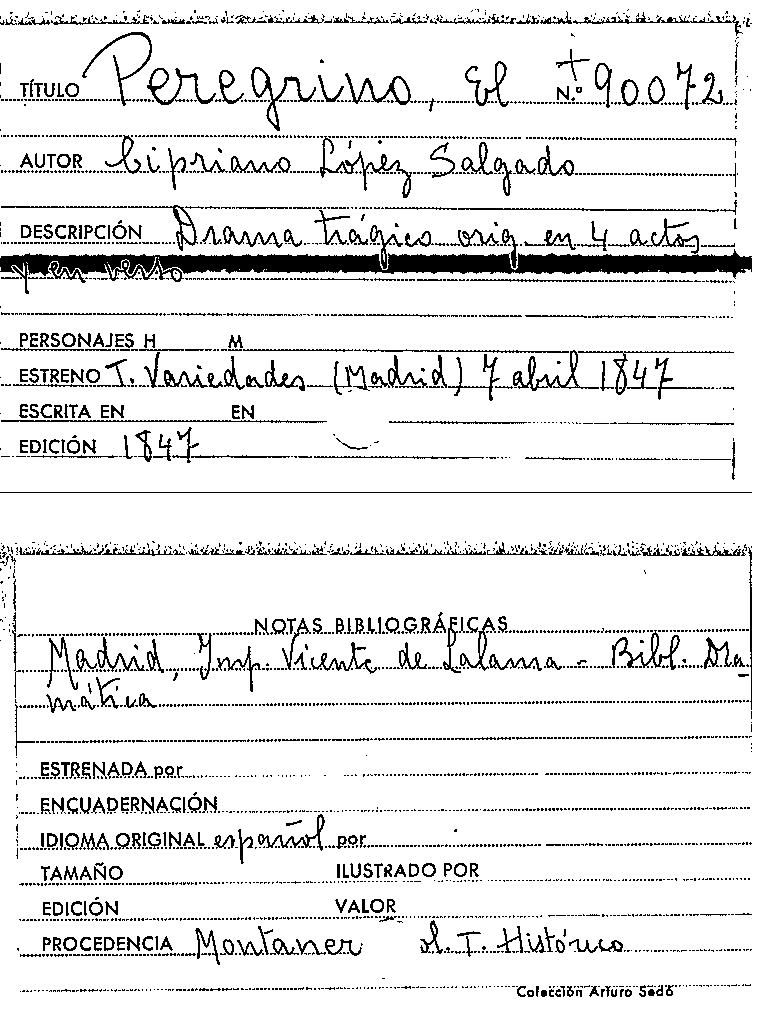 TÍTULO Peregrino, El N.º 90072
AUTOR Cipriano López Salgado
DESCRIPCIÓN Drama trágico orig. en 4 actos
y en verso
PERSONAJES H M
ESTRENO T. Variedades (Madrid) 7 abril 1847
ESCRITA EN EN
EDICIÓN 1847
NOTAS BIBLIOGRÁFICAS
Madrid, Imp. Vicente de Lalama - Bibl. Dra-
mática
ESTRENADA por
ENCUADERNACIÓN
IDIOMA ORIGINAL español por
TAMAÑO ILUSTRADO POR
EDICIÓN VALOR
PROCEDENCIA Montaner T. Histórico
Colección Arturo Sedó